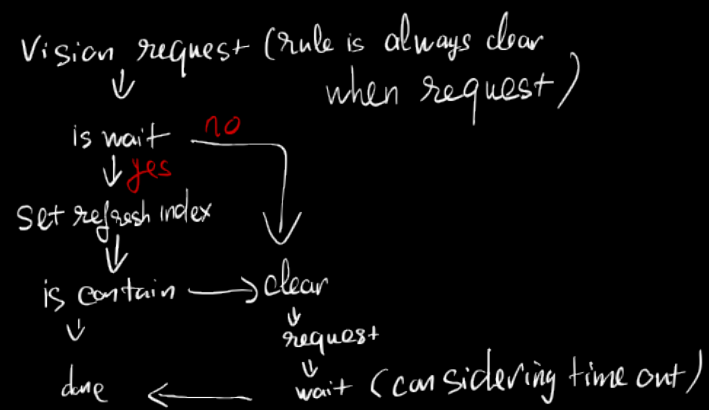 Vision request (rule is always clear
when request)
is wait no
yes
Set refresh index
is contain clear
request
done wait (considering time out)